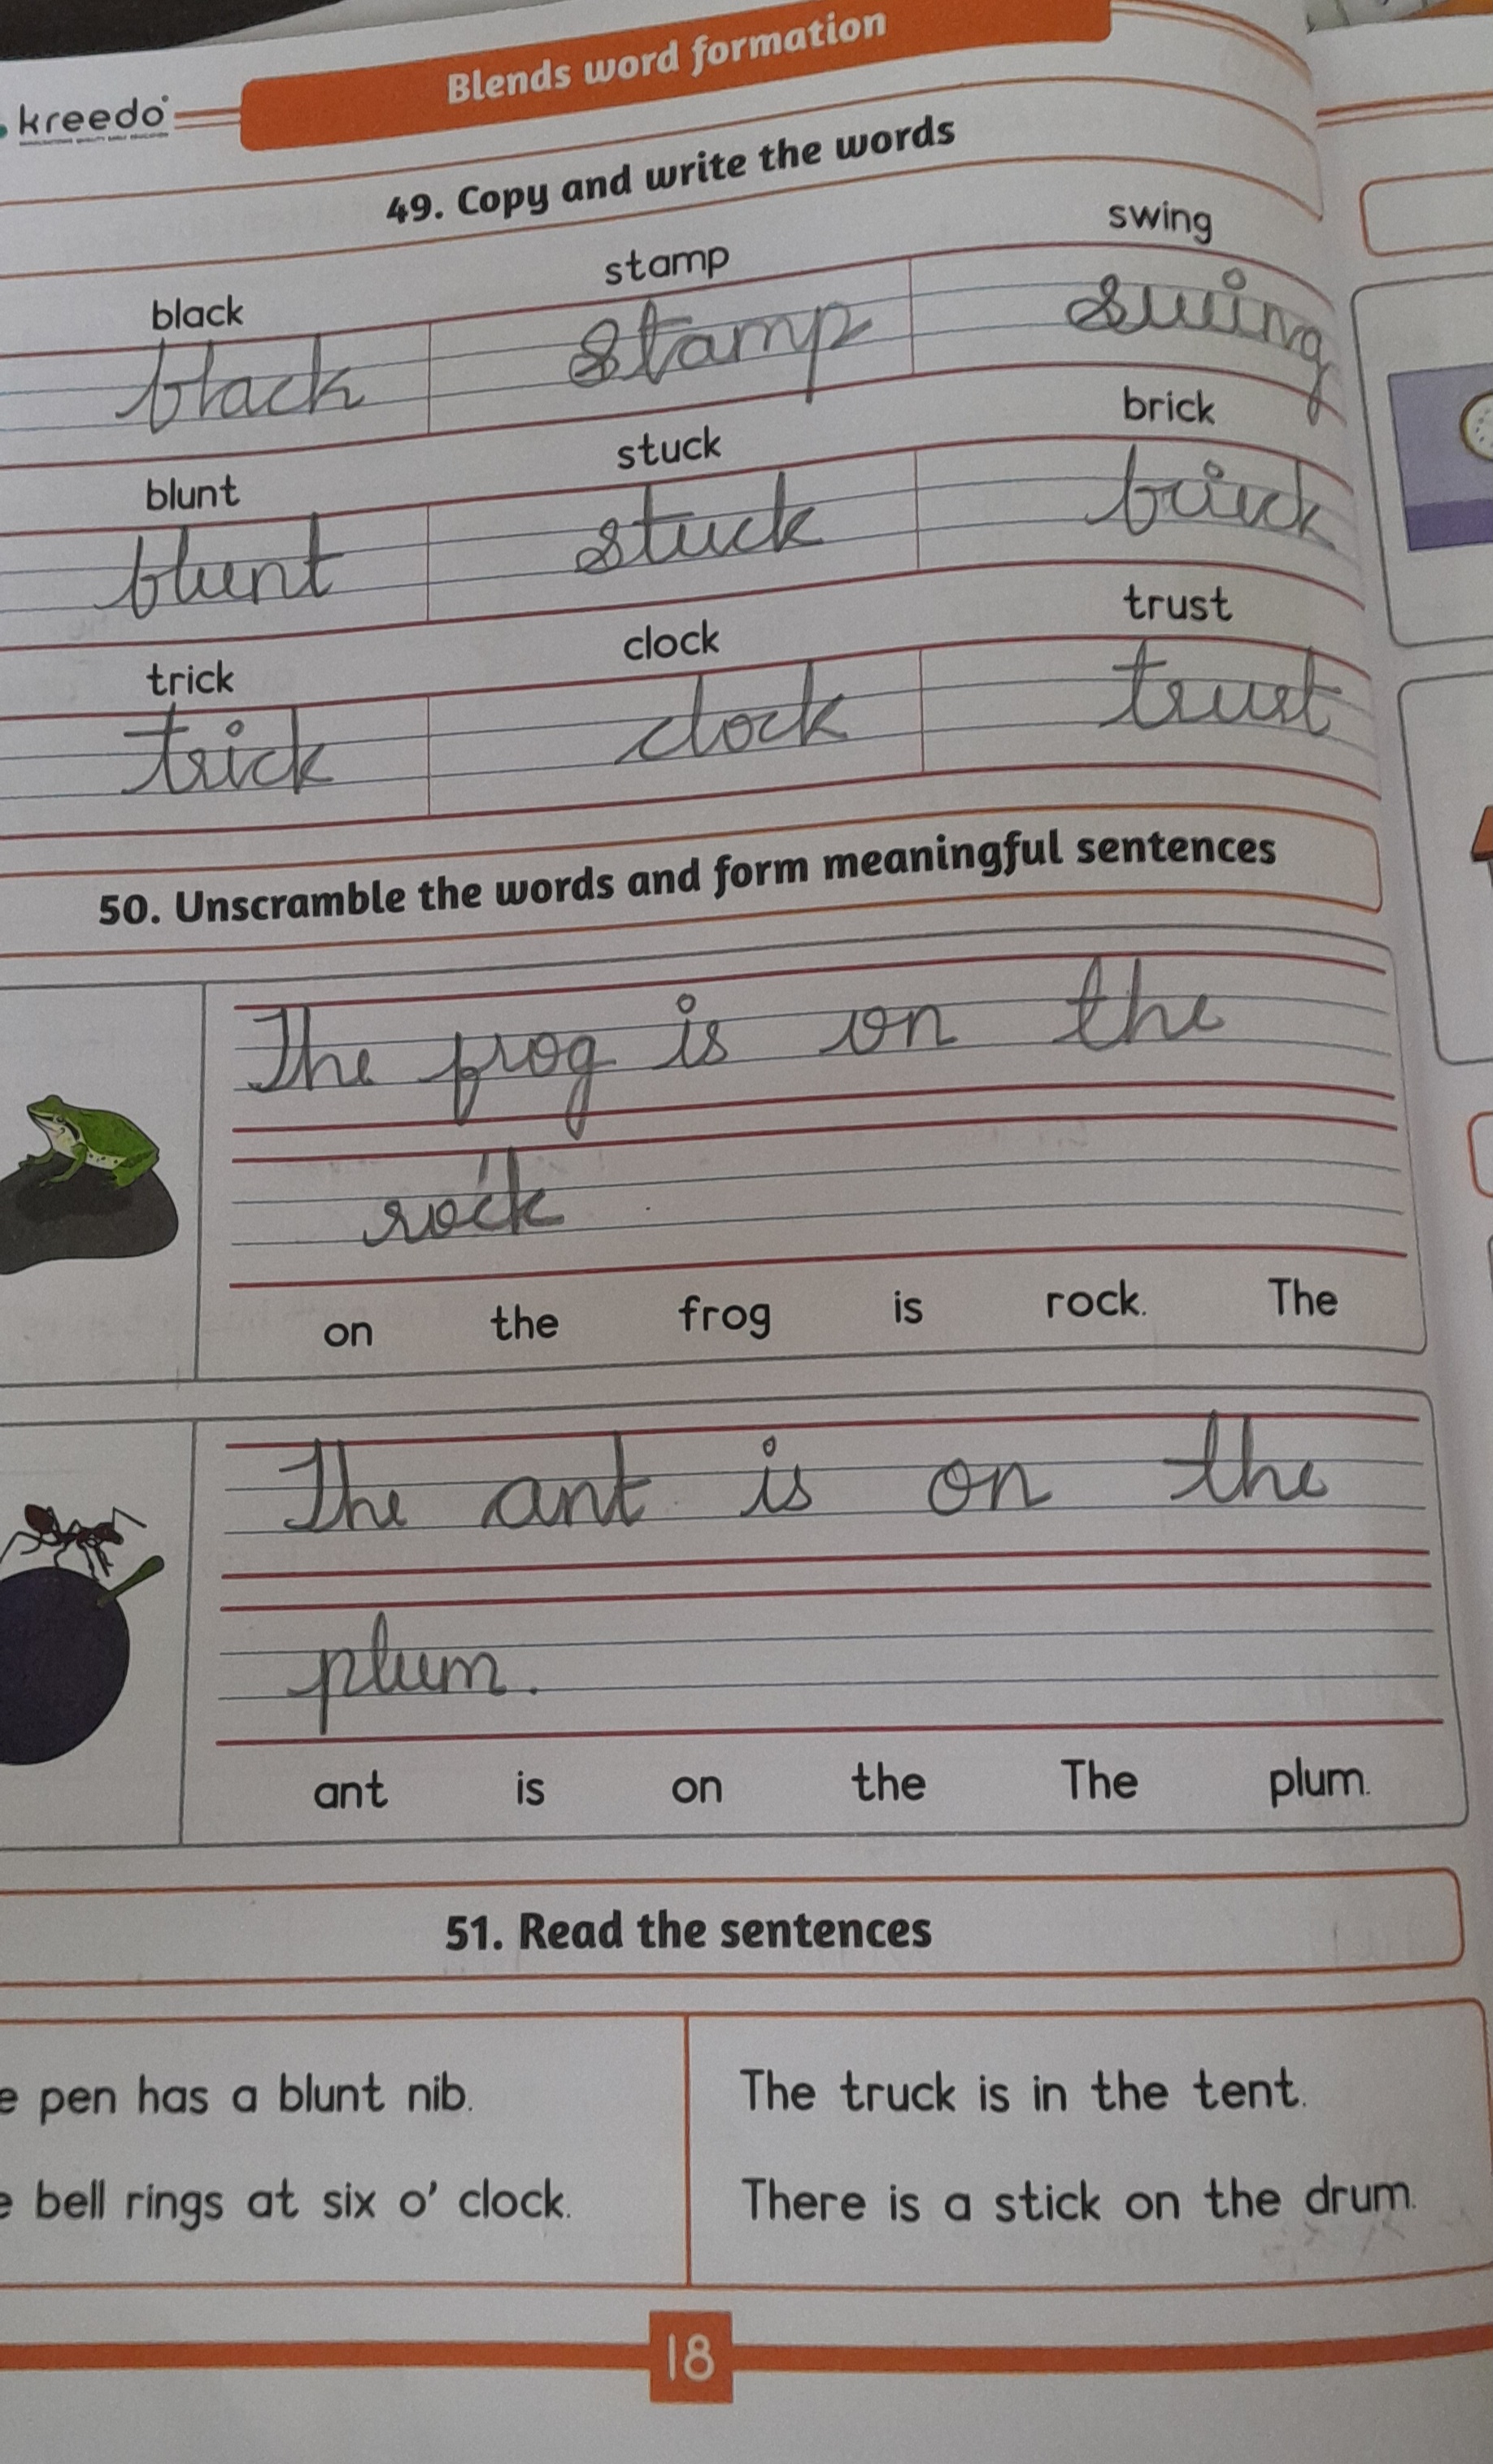 Blends word formation
kreedo
49. Copy and write the words
black stamp swing
black stamp swing
blunt stuck brick
blunt stuck brick
trick clock trust
trick clock trust
50. Unscramble the words and form meaningful sentences
The frog is on the
rock .
on the frog is rock. The
The ant is on the
plum.
ant is on the The plum.
51. Read the sentences
e pen has a blunt nib.
e bell rings at six o' clock.
The truck is in the tent.
There is a stick on the drum.
18